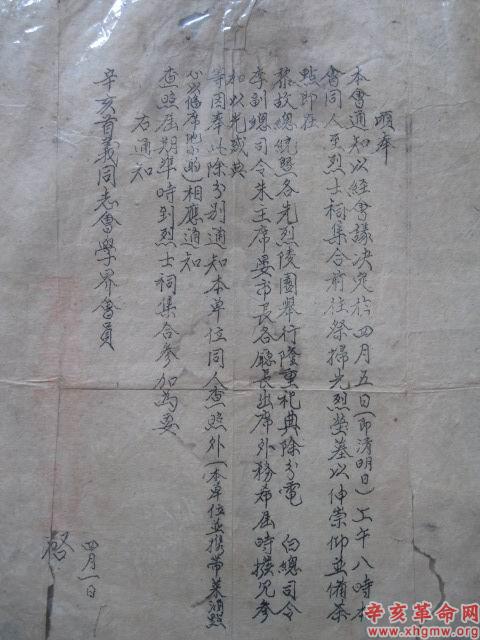 頃奉
本會通知以經會議決定於四月五日(即清明日)上午八時本
會同人至烈士祠集合前往祭掃先烈塋墓以伸崇仰並備茶
點即在
黎故總統暨各先烈陵園舉行隆重祀典除分電 白總司令
李副總司令朱主席晏市長各廳長出席外務希屆時撥冗參
加以光盛典
等因奉此除分別通知本單位同人查照外(本單位並攜帶菜酒點
心以備席地小酌)相應通知
查照屆期準時到烈士祠集合參加為要
右通知
辛亥首義同志會學界會員
四月一日
啓
辛亥革命网
www.xhgmw.org